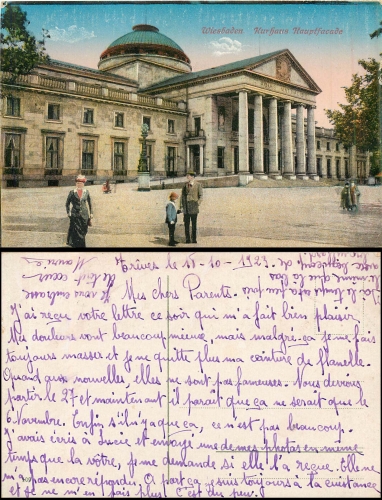 Wiesbaden Kurhaus Hauptfacade
Trèves le 15-10-1924.
Mes chers Parents.
J'ai reçu votre lettre ce soir qui m'a fait bien plaisir
Mes douleurs vont beaucoup mieux, mais malgré ça je me fais
toujours masser et je ne quitte plus ma ceinture de flanelle.
Quand aux nouvelles, elles ne sont pas fameuses. Nous devions
partir le 27 et maintenant il parait que ça ne serait que le
6 Novembre. Enfin s'il n'y a que ça, ce n'est pas beaucoup.
J'avais écris à Sucie et envoyé une de mes photos en même
temps que la votre, je me demande si elle l'a reçue. Elle ne
m'a pas encore répondu. A part ça je suis toujours à la
et je ne m'en fais plus! C'est du peu.
Je vous embrasse
de tout cœur